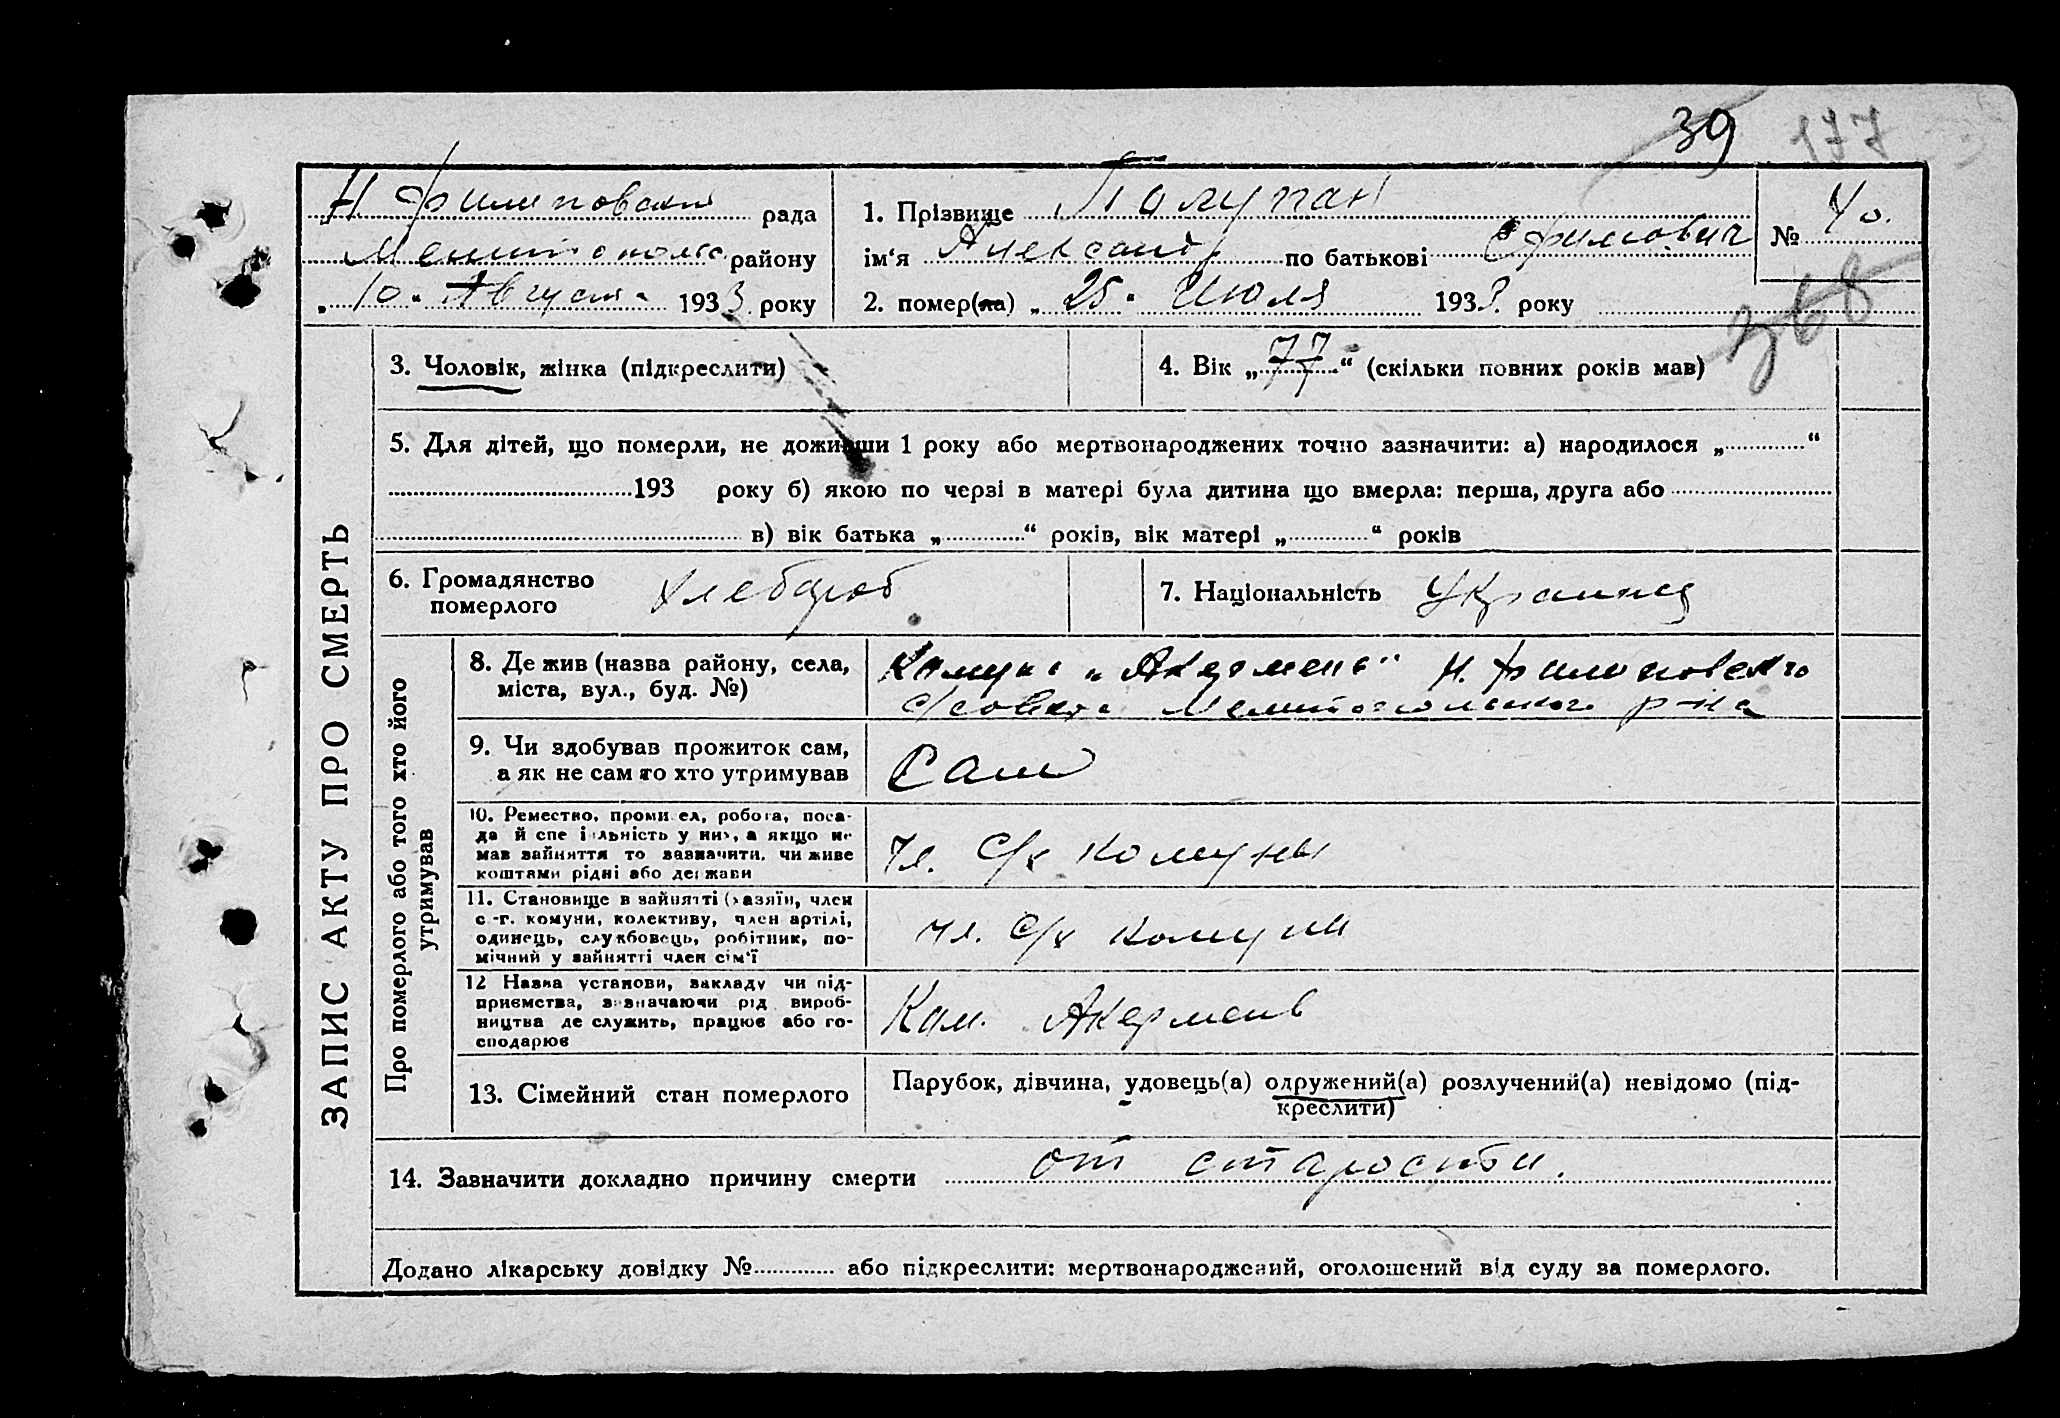 39 177
Н Филиповский рада
Мелитополь. району
„ 10 “ Августа 1933 року
1. Прізвище Полупан
ім‘я Александр по батькові Ефимович
2. помер(ла) „ 25 “ Июля 1933 року
№ 40.
368
ЗАПИС АКТУ ПРО СМЕРТЬ
3. Чоловік, жінка (підкреслити)
4. Вік „ 77 “ (скільки повних років мав)
5. Для дітей, що померли, не доживши 1 року або мертвонароджених точно зазначити: а) народилося „ “
193 року б) якою по черзі в матері була дитина що вмерла: перша, друга або
в) вік батька „ “ років, вік матері „ “ років
6. Громадянство
померлого
Хлебороб
7. Національність Украинец
Про померлого або того хто його
утримував
8. Де жив (назва району, села,
міста, вул., буд. №)
Комуна „Акермень“ Н. Филиповского
с/совета Мелитопольского р-на
9. Чи здобував прожиток сам,
а як не сам то хто утримував
Сам
10. Ремество, промисел, робота, поса-
да й спеціяльність у них, а якщо не
мав зайняття то зазначити, чи живе
коштами рідні або держави
Чл. С/х Комуны
11. Становище в зайнятті (хазяїн, член
с.-г. комуни, колективу, член артілі,
одинець, службовець, робітник, по-
мічний у зайнятті член сім‘ї
Чл. С/х Комуни
12 Назва установи, закладу чи під-
приємства, зазначаючи рід вироб-
ництва де служить, працює або го-
сподарює
Ком. Акермень
13. Сімейний стан померлого
Парубок, дівчина, удовець(а) одружений(а) розлучений(а) невідомо (під-
креслити)
14. Зазначити докладно причину смерти от старости.
Додано лікарську довідку № або підкреслити: мертвонароджений, оголошений від суду за померлого.